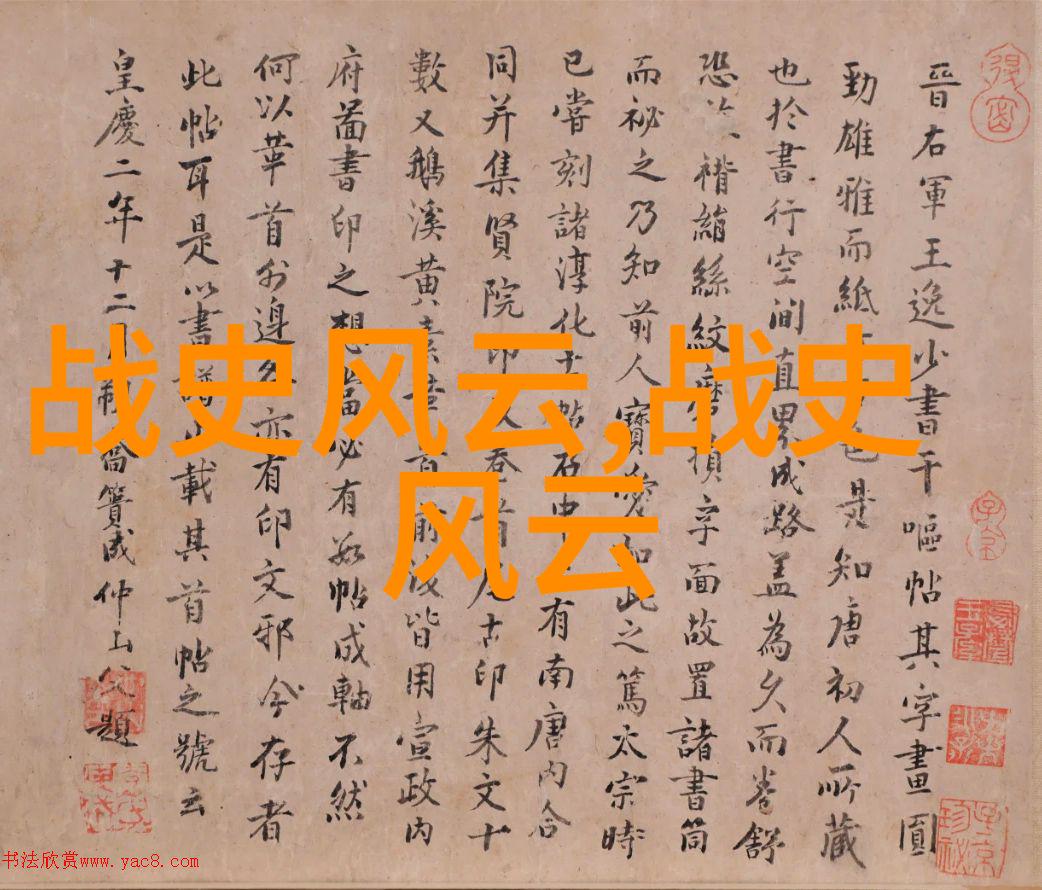 战史风云,战史
风云
晋右軍王逸少書干嘔帖其字畫圓
勁雄雅而紙 是知唐初人所藏
也於書行空間直界成路蓋為久而卷舒
恐 褙絹絲紋磨損字面故置諸書筒
而祕之乃知前人寶愛如此之篤太宗時
已嘗刻諸淳化 帖 有南唐內合
同并集賢院印 古印朱文十
數又鵝溪黃 前後皆用宣政內
府圖書印之想當必有數帖成軸不然
何以華首外邊 亦有印文邪今存者
此帖耳是以書譜 載其首帖之號云
皇慶二年十二月 簣成仲山父題
书法欣赏www.yac8.com